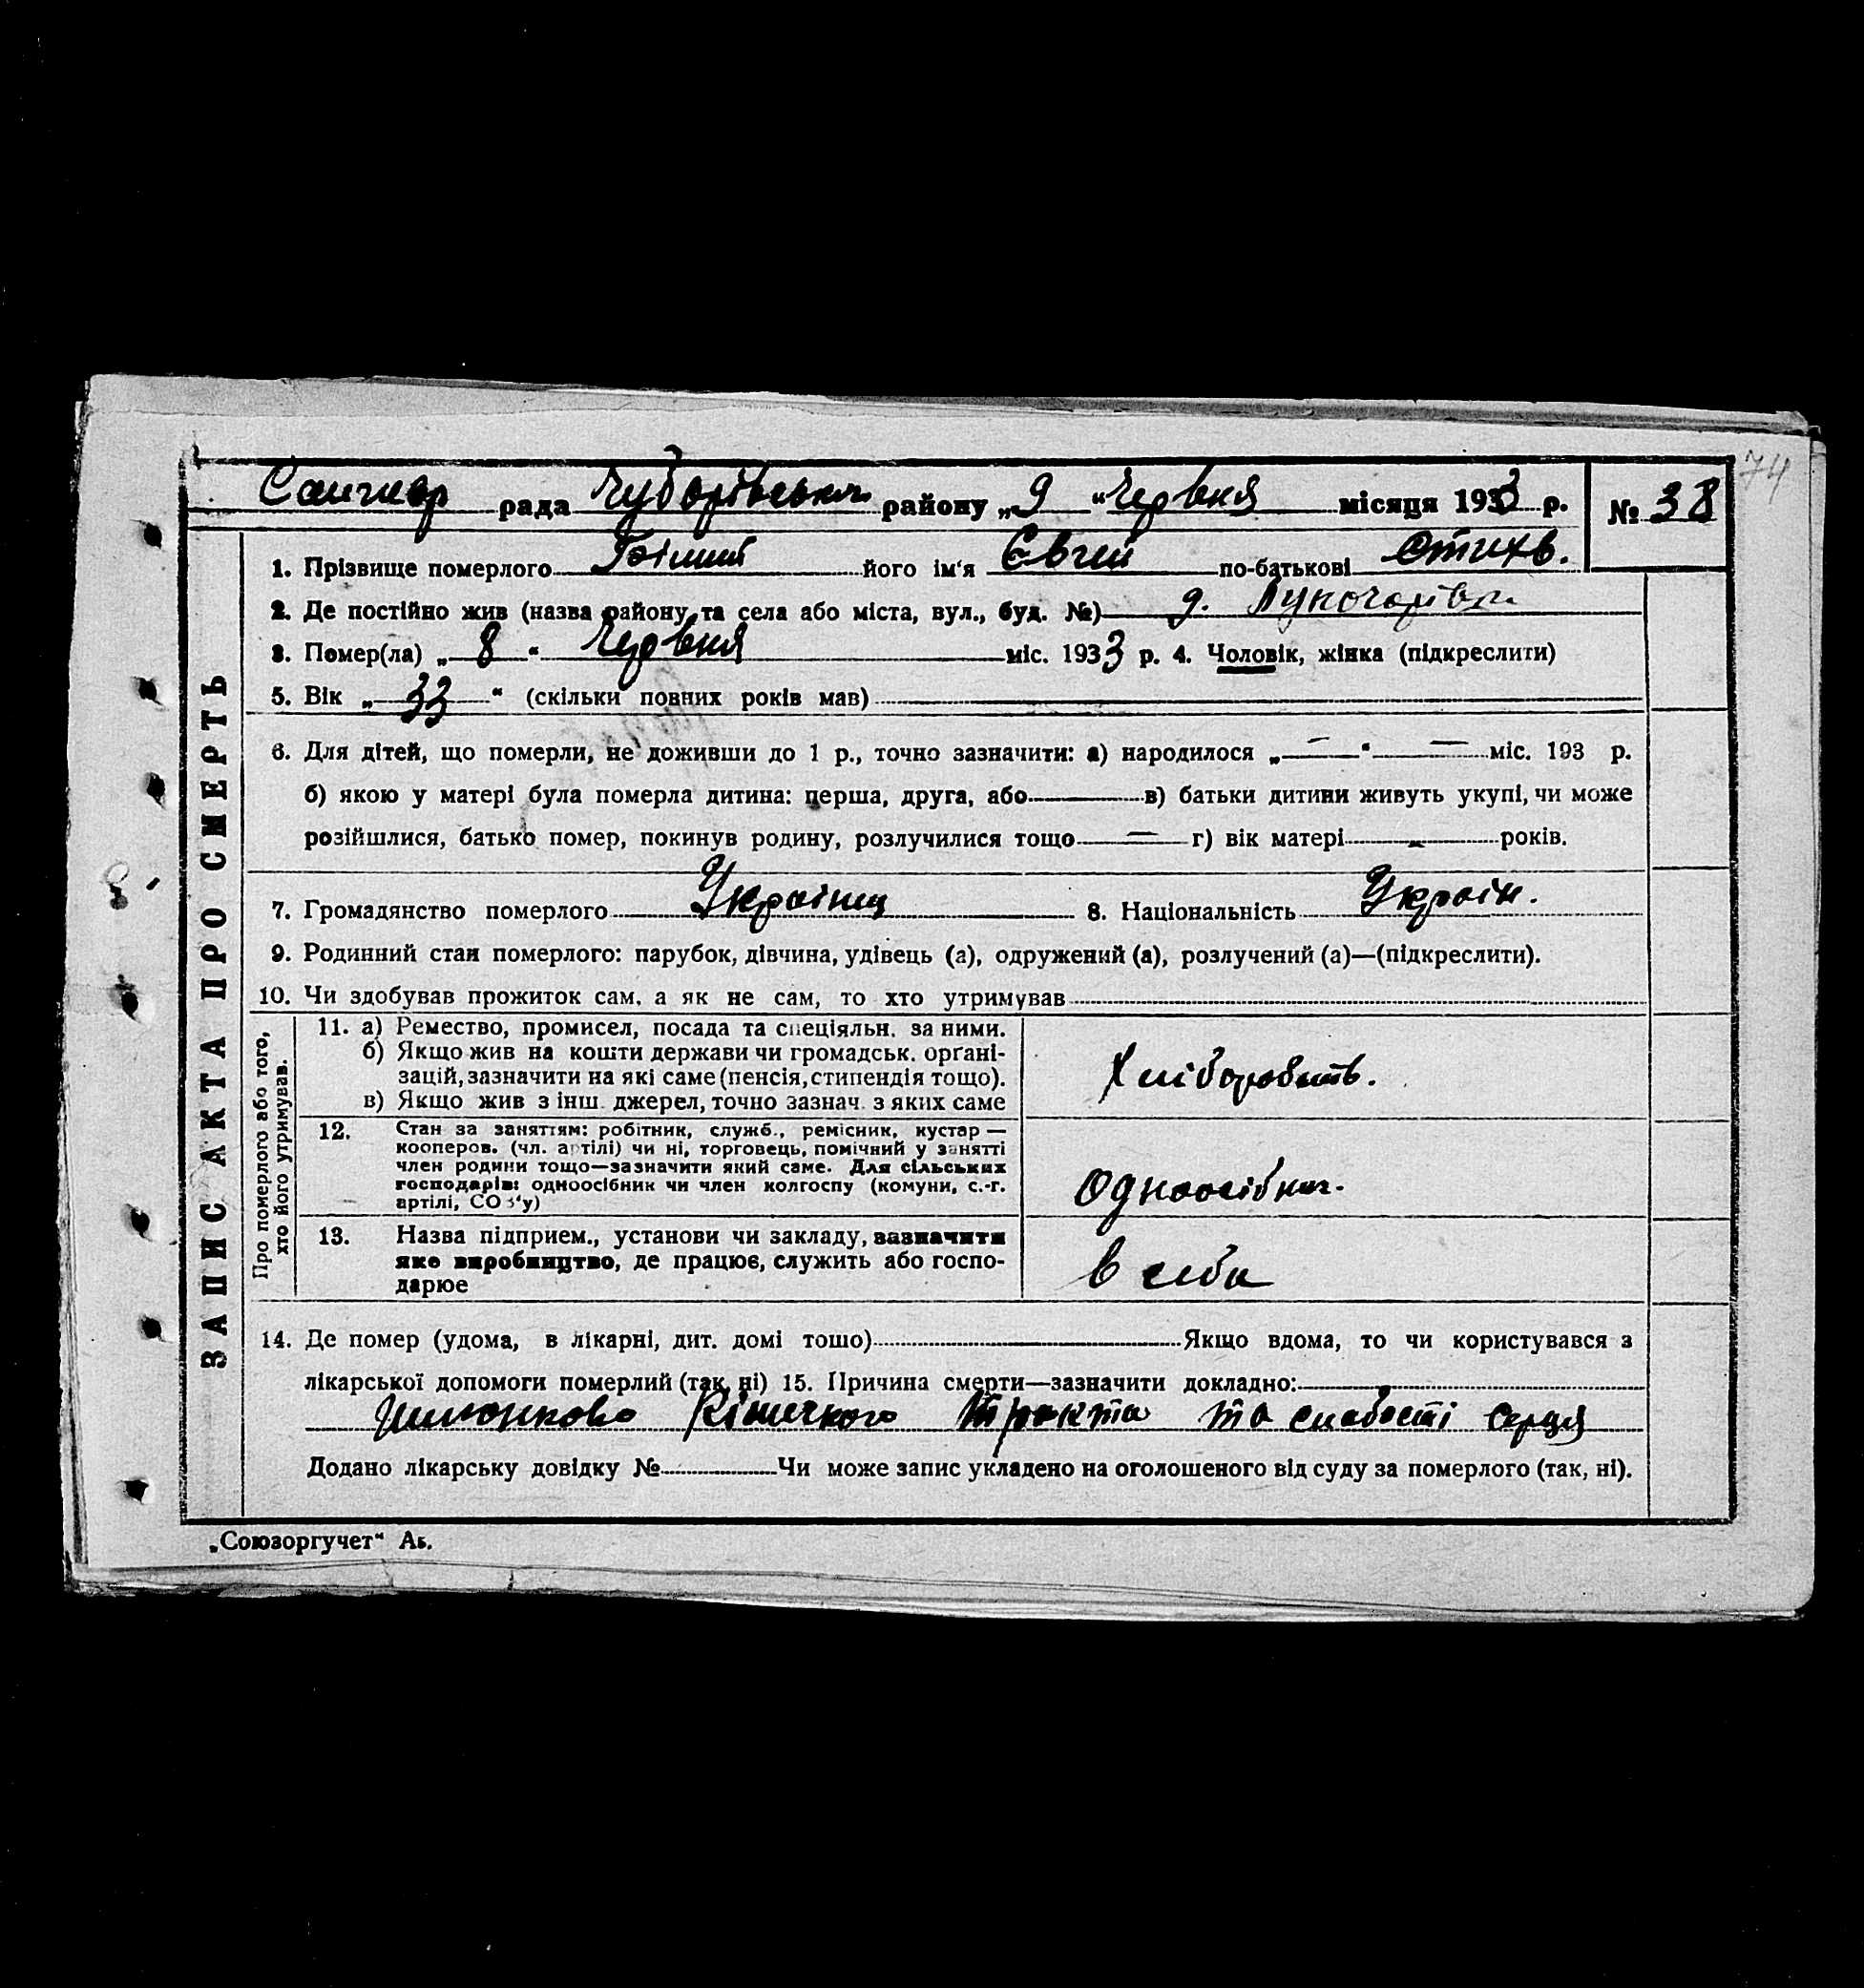 74
рада Чубарівська району „9“ Червня місяця 1933 р. № 38
ЗАПИС АКТА ПРО СМЕРТЬ
1. Прізвище померлого його ім‘я Євген по-батькові
2. Де постійно жив (назва району та села або міста, вул., буд. №)
3. Помер(ла) „8“ Червня міс. 1933 р. 4. Чоловік, жінка (підкреслити)
5. Вік „33“ (скільки повних років мав)
6. Для дітей, що померли, не доживши до 1 р., точно зазначити: а) народилося „—“ — міс. 193 р.
б) якою у матері була померла дитина: перша, друга, або в) батьки дитини живуть укупі, чи може
розійшлися, батько помер, покинув родину, розлучилися тощо — г) вік матері — років.
7. Громадянство померлого Українец 8. Національність Україн.
9. Родинний стан померлого: парубок, дівчина, удівець (а), одружений (а), розлучений (а)—(підкреслити).
10. Чи здобував прожиток сам, а як не сам, то хто утримував
Про померлого або того,
хто його утримував.
11. а) Ремество, промисел, посада та спеціяльн. за ними.
б) Якщо жив на кошти держави чи громадськ. орґані-
зацій, зазначити на які саме (пенсія, стипендія тощо).
в) Якщо жив з інш. джерел, точно зазнач. з яких саме
12. Стан за заняттям: робітник, служб., ремісник, кустар —
кооперов. (чл. артілі) чи ні, торговець, помічний у занятті
член родини тощо—зазначити який саме. Для сільських
господарів: одноосібник чи член колгоспу (комуни, с.-г.
артілі, СОЗ‘у)
13. Назва підприєм., установи чи закладу, зазначити
яке виробництво, де працює, служить або госпо-
дарює
в себе
14. Де помер (удома, в лікарні, дит. домі тощо) Якщо вдома, то чи користувався з
лікарської допомоги померлий (так, ні) 15. Причина смерти—зазначити докладно:
тракта та слабості серця
Додано лікарську довідку № Чи може запис укладено на оголошеного від суду за померлого (так, ні).
„Союзоргучет“